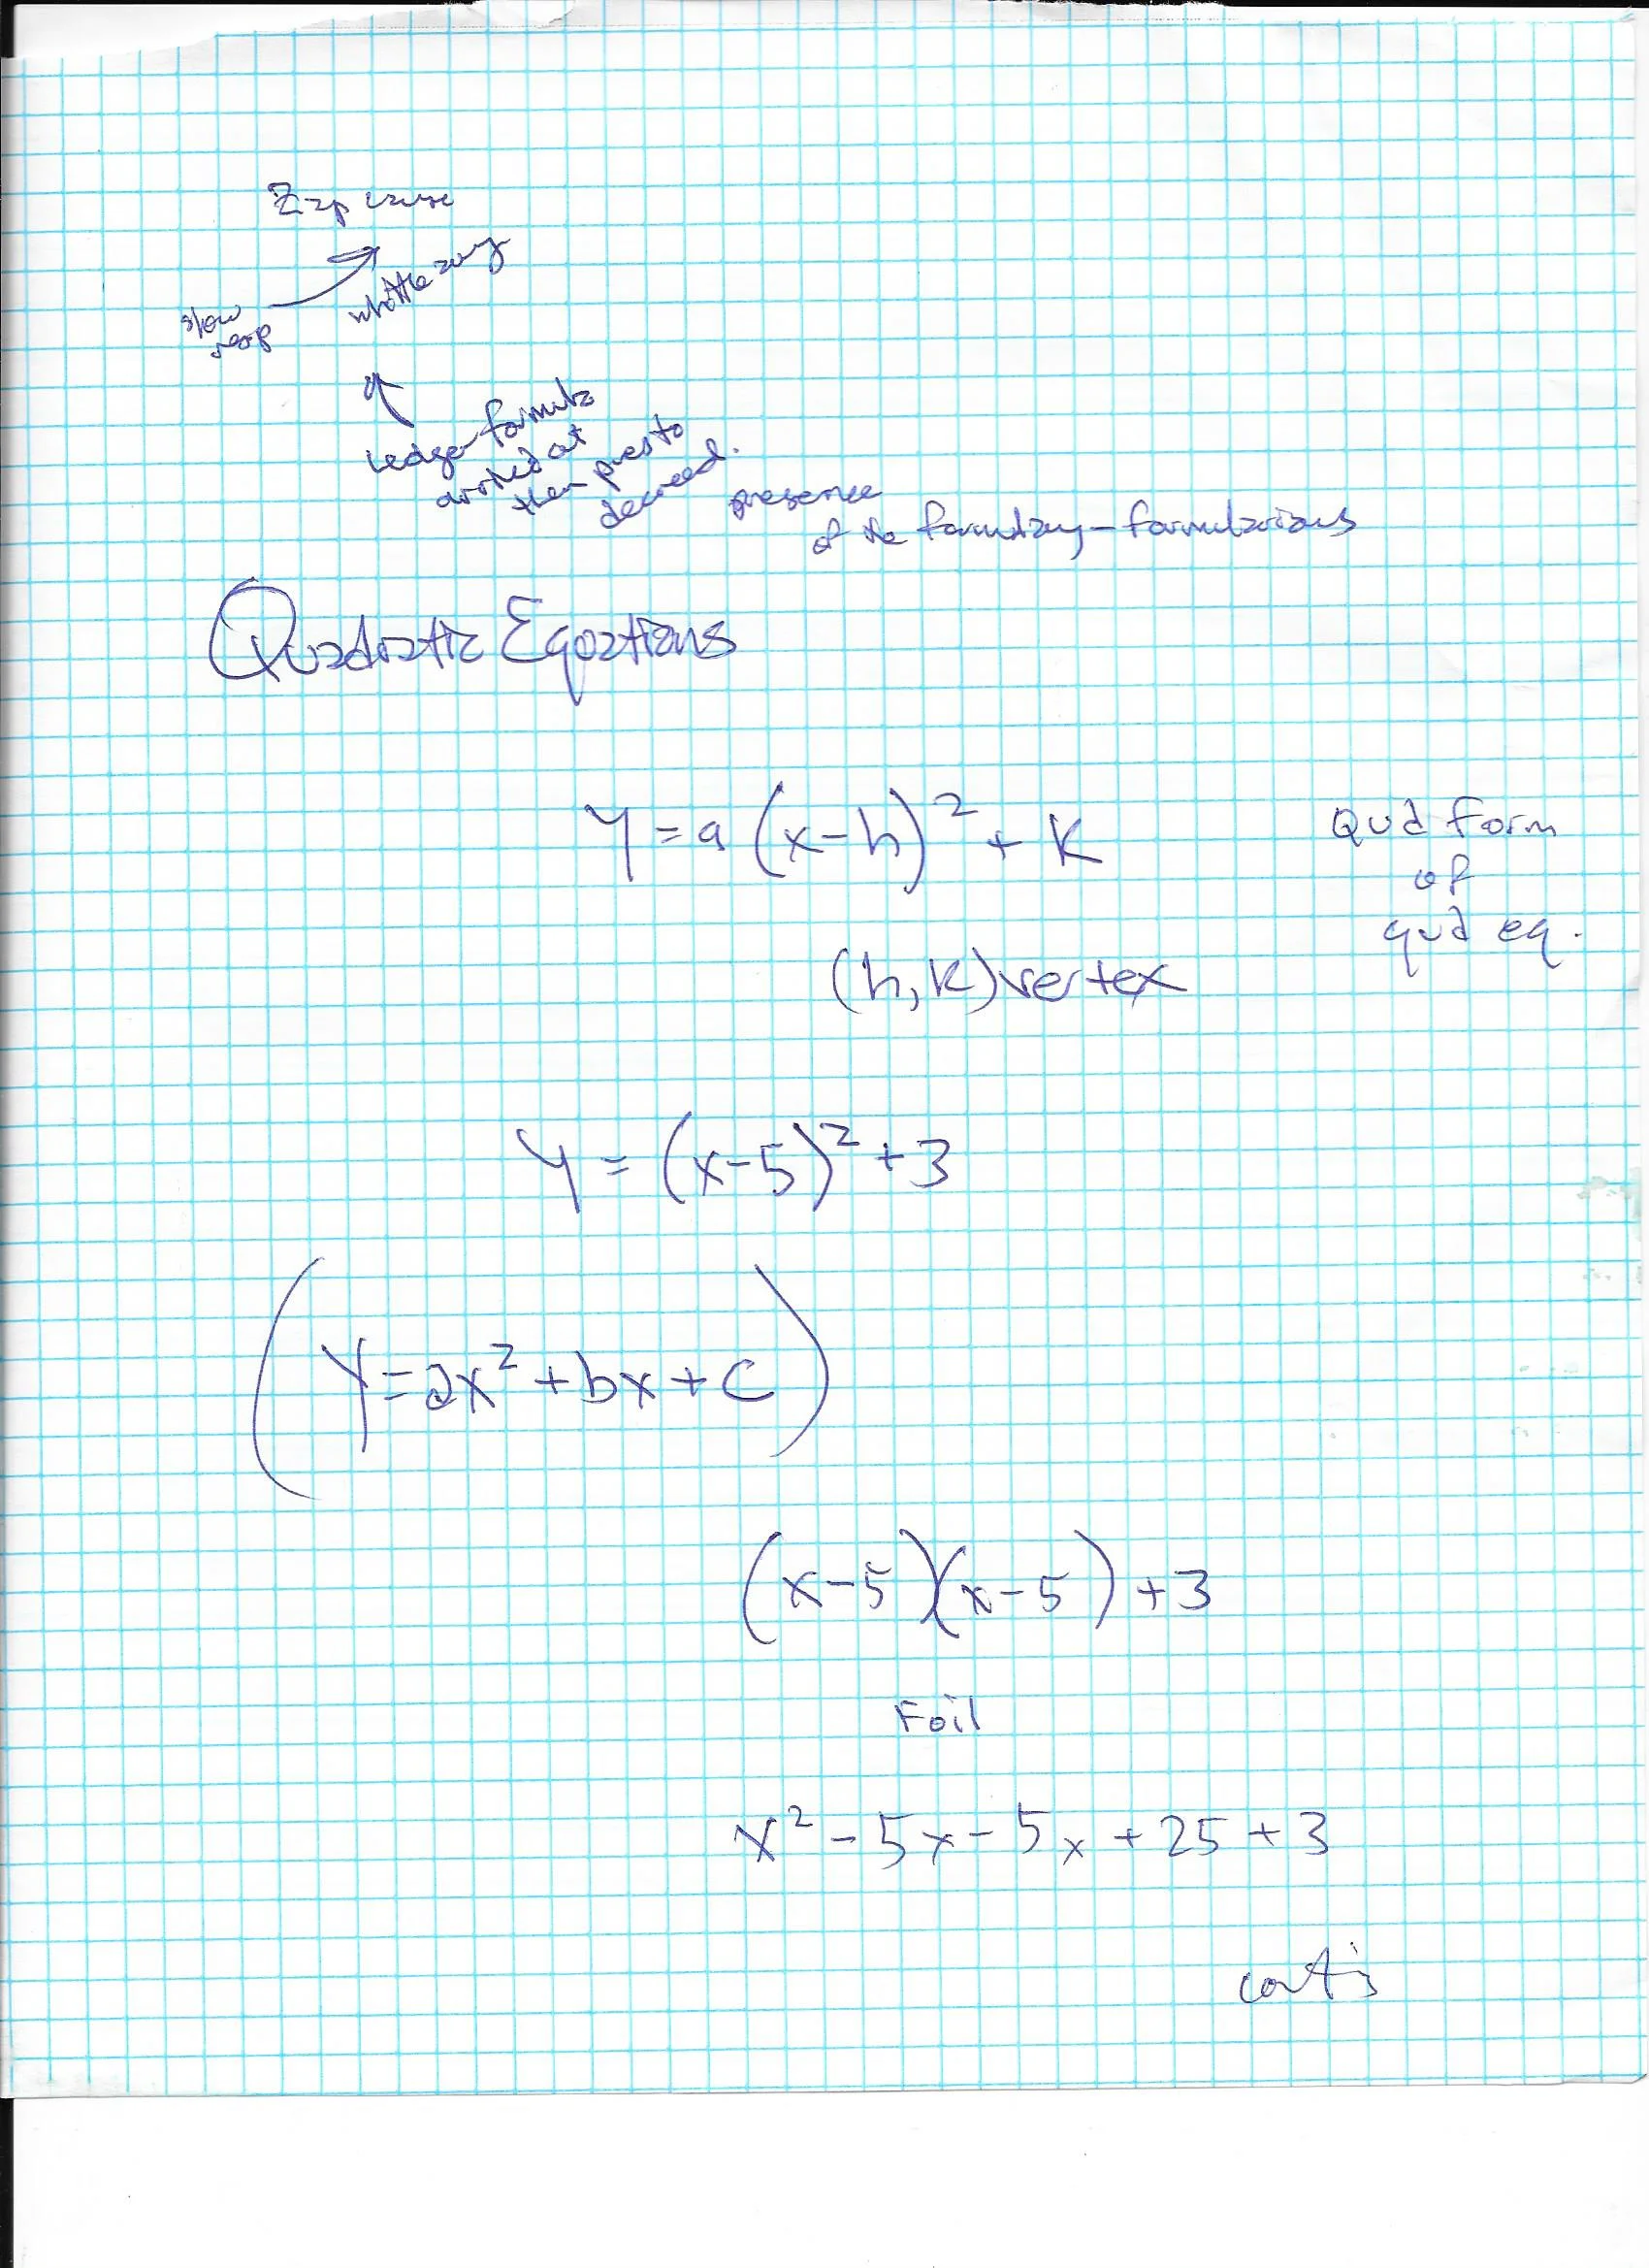 slow
whittle away
Ledger formula
arrived at
then presto
decreed.
presence
of the formulary - formularians
Quadratic Equations
Y = a(x-h)² + K
Qud Form
of
qud eq.
(h,k) vertex
Y = (x-5)² + 3
(Y = ax² + bx + c)
(x-5)(x-5) + 3
Foil
x² - 5x - 5x + 25 + 3